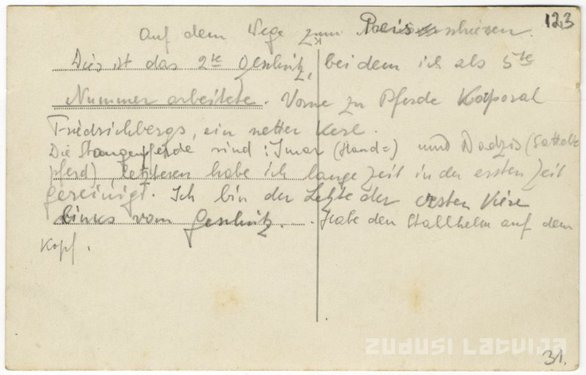 123
Auf dem Wege zum Preisschiesen.
Dies ist das 2te Geschütz, bei dem ich als 5te
Nummer arbeitete. Vorne zu Pferde Korporal
Friedrichbergs, ein netter Kerl.
Die Stangenpferde sind: Imar (Hand=) und Dadzis (Sattel
pferd) letzteren habe ich lange Zeit in der ersten Zeit
gereinigt. Ich bin der Letzte der ersten
links vom Geschütz. Habe den Stallhelm auf dem
Kopf.
ZUDUSI LATVIJA
31.